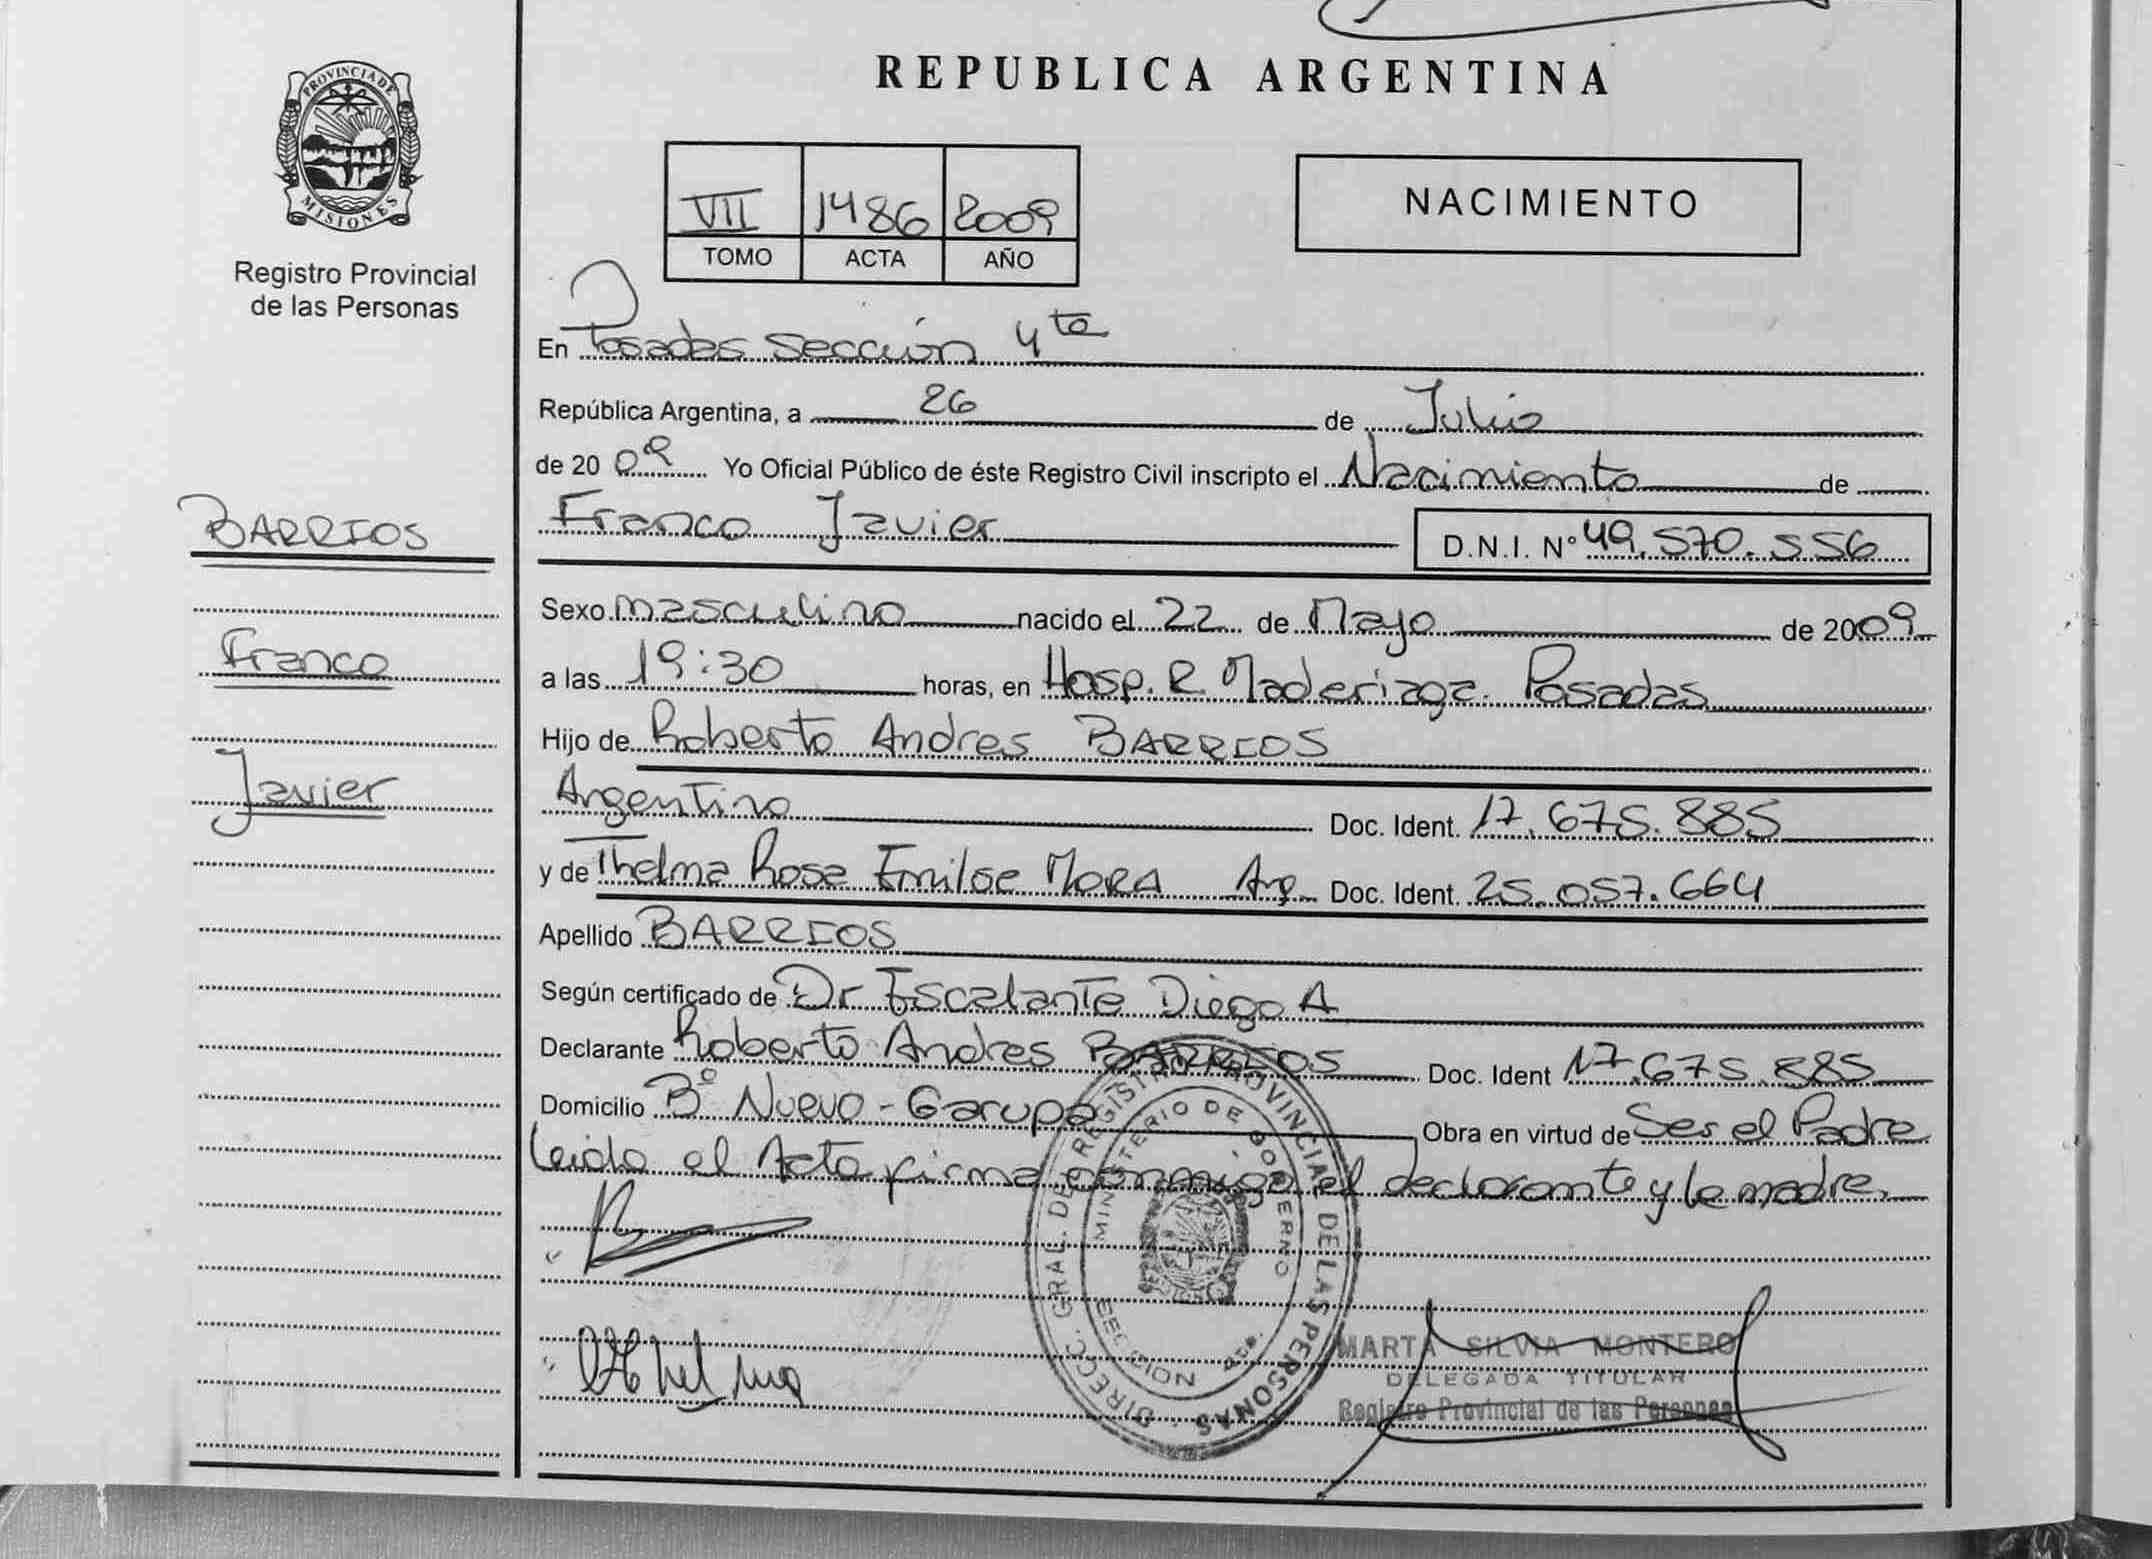 REPUBLICA ARGENTINA
PROVINCIA DE
MISIONES
Registro Provincial
de las Personas
VII 1486 2009
TOMO ACTA AÑO
NACIMIENTO
En Posadas Sección 4ta
República Argentina, a 26 de Julio
de 2009 Yo Oficial Público de éste Registro Civil inscripto el Nacimiento de
Franco Javier D.N.I. Nº 49.570.556
BARRIOS
Franco
Javier
Sexo masculino nacido el 22 de Mayo de 2009
a las 19:30 horas, en Hosp. R. Maderiaga. Posadas
Hijo de Roberto Andres BARRIOS
Argentino Doc. Ident. 17.675.885
y de Thelma Rosa Emilse MORA Arg Doc. Ident. 25.057.664
Apellido BARRIOS
Según certificado de Dr Escalante Diego A
Declarante Roberto Andres BARRIOS Doc. Ident 17.675.885
Domicilio Bº Nuevo - Garupa Obra en virtud de Ser el Padre
Leido el Acta firma conmigo el declarante y la madre.
DIRECC. GRAL. DEL REGISTRO PROVINCIAL DE LAS PERSONAS
MINISTERIO DE GOBIERNO
SECCION
Thelma
MARTA SILVIA MONTERO
DELEGADA TITULAR
Registro Provincial de las Personas